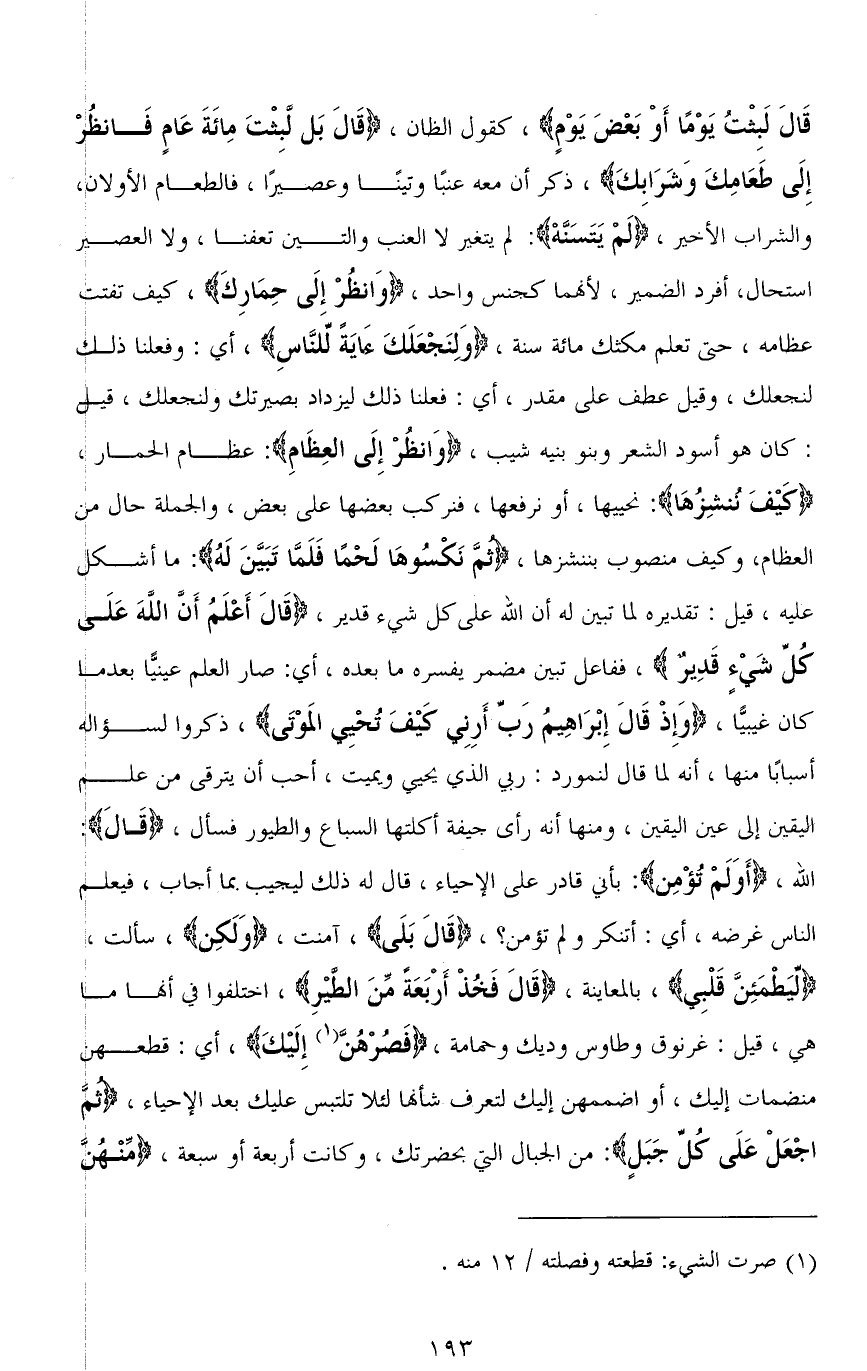 قَالَ لَبِثْتُ يَوْمًا أَوْ بَعْضَ يَوْمٍ﴾ ، كقول الظان ، ﴿قَالَ بَل لَّبِثْتَ مِائَةَ عَامٍ فَـانظُرْ
إِلَى طَعَامِكَ وَشَرَابِكَ﴾ ، ذكر أن معه عنبًا وتينًا وعصيرًا ، فالطعام الأولان،
والشراب الأخير ، ﴿لَمْ يَتَسَنَّهْ﴾: لم يتغير لا العنب والتين تعفنا ، ولا العصير
استحال، أفرد الضمير ، لأنهما كجنس واحد ، ﴿وَانظُرْ إِلَى حِمَارِكَ﴾ ، كيف تفتت
عظامه ، حتى تعلم مكثك مائة سنة ، ﴿وَلِنَجْعَلَكَ ءَايَةً لِّلنَّاسِ﴾ ، أي : وفعلنا ذلك
لنجعلك ، وقيل عطف على مقدر ، أي : فعلنا ذلك ليزداد بصيرتك ولنجعلك ، قيل
: كان هو أسود الشعر وبنو بنيه شيب ، ﴿وَانظُرْ إِلَى العِظَامِ﴾: عظام الحمار ،
﴿كَيْفَ نُنشِزُهَا﴾: نحييها ، أو نرفعها ، فنركب بعضها على بعض ، والجملة حال من
العظام، وكيف منصوب بننشزها ، ﴿ثُمَّ نَكْسُوهَا لَحْمًا فَلَمَّا تَبَيَّنَ لَهُ﴾: ما أشكل
عليه ، قيل : تقديره لما تبين له أن الله على كل شيء قدير ، ﴿قَالَ أَعْلَمُ أَنَّ اللَّهَ عَلَـى
كُلِّ شَيْءٍ قَدِيرٌ ﴾ ، ففاعل تبين مضمر يفسره ما بعده ، أي: صار العلم عينيًّا بعدما
كان غيبيًّا ، ﴿وَإِذْ قَالَ إِبْرَاهِيمُ رَبِّ أَرِنِي كَيْفَ تُحْيِي المَوْتَى﴾ ، ذكروا لسؤاله
أسبابًا منها ، أنه لما قال لنمورد : ربي الذي يحيي ويميت ، أحب أن يترقى من علم
اليقين إلى عين اليقين ، ومنها أنه رأى جيفة أكلتها السباع والطيور فسأل ، ﴿قَـالَ﴾:
الله ، ﴿أَوَلَمْ تُؤْمِن﴾: بأني قادر على الإحياء ، قال له ذلك ليجيب بما أجاب ، فيعلم
الناس غرضه ، أي : أتنكر و لم تؤمن؟ ، ﴿قَالَ بَلَى﴾ ، آمنت ، ﴿وَلَكِن﴾ ، سألت ،
﴿لِّيَطْمَئِنَّ قَلْبِي﴾ ، بالمعاينة ، ﴿قَالَ فَخُذْ أَرْبَعَةً مِّنَ الطَّيْرِ﴾ ، اختلفوا في أنها ما
هي ، قيل : غرنوق وطاوس وديك وحمامة ، ﴿فَصُرْهُنَّ(١) إِلَيْكَ﴾ ، أي : قطعهن
منضمات إليك ، أو اضممهن إليك لتعرف شأنها لئلا تلتبس عليك بعد الإحياء ، ﴿ثُمَّ
اجْعَلْ عَلَى كُلِّ جَبَلٍ﴾: من الجبال التي بحضرتك ، وكانت أربعة أو سبعة ، ﴿مِّنْـهُنَّ
(١) صرت الشيء: قطعته وفصلته / ١٢ منه .
١٩٣